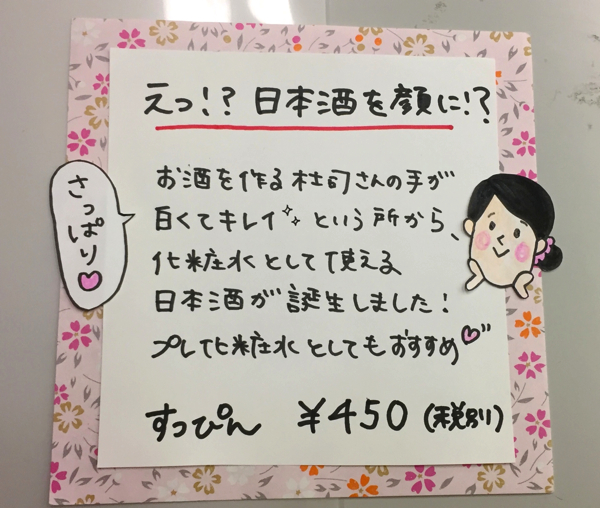 えっ!? 日本酒を顔に!?
お酒を作る杜司さんの手が
白くてキレイ✨という所から、
化粧水として使える
日本酒が誕生しました!
プレ化粧水としてもおすすめ♡
すっぴん ¥450(税別)
さっぱり♡